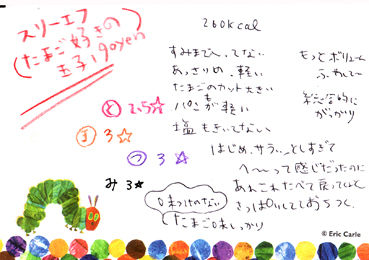 スリーエフ
(たまご好きの
玉子) 190yen
260kcal
すみまで入ってない
あっさりめ、軽い
たまごのカット大きい
パンが軽い
塩もきいてない
もっとボリューム
ふやして〜
総合的に
がっかり
と 2.5☆
ま 3☆
つ 3☆
み 3☆
はじめ、サラッとしすぎて
へ〜って感じだったのに
あれこれたべて戻ってくると
さっぱりしてておちつく。
味つけのない
たまご味しっかり
© Eric Carle